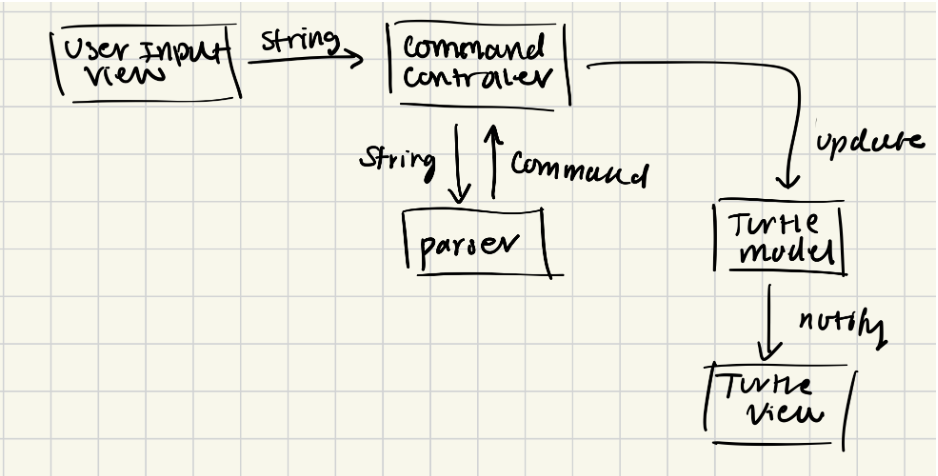 User Input
view
string
command
controller
update
string
command
parser
Turtle
model
notify
Turtle
view